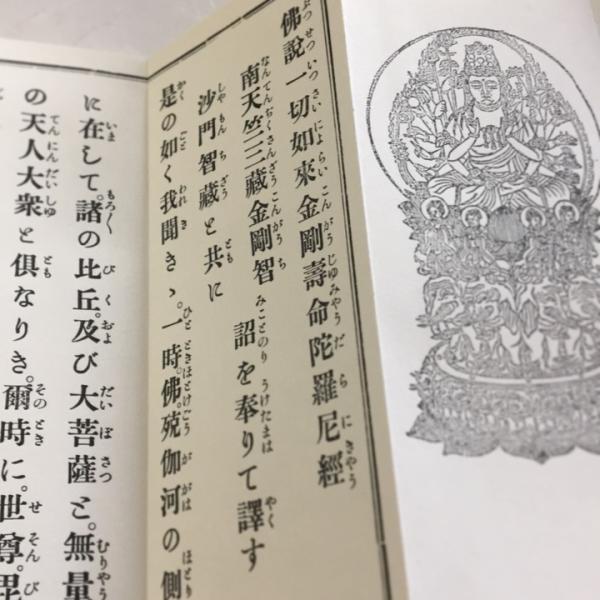 佛說一切如來金剛壽命陀羅尼經
南天竺三藏金剛智
沙門智藏と共に 詔を奉りて譯す
是の如く我聞きゝ。一時。佛。殑伽河の側
に在して。諸の比丘。及び大菩薩と。無量
の天人大衆と俱なりき。爾時に。世尊。毘